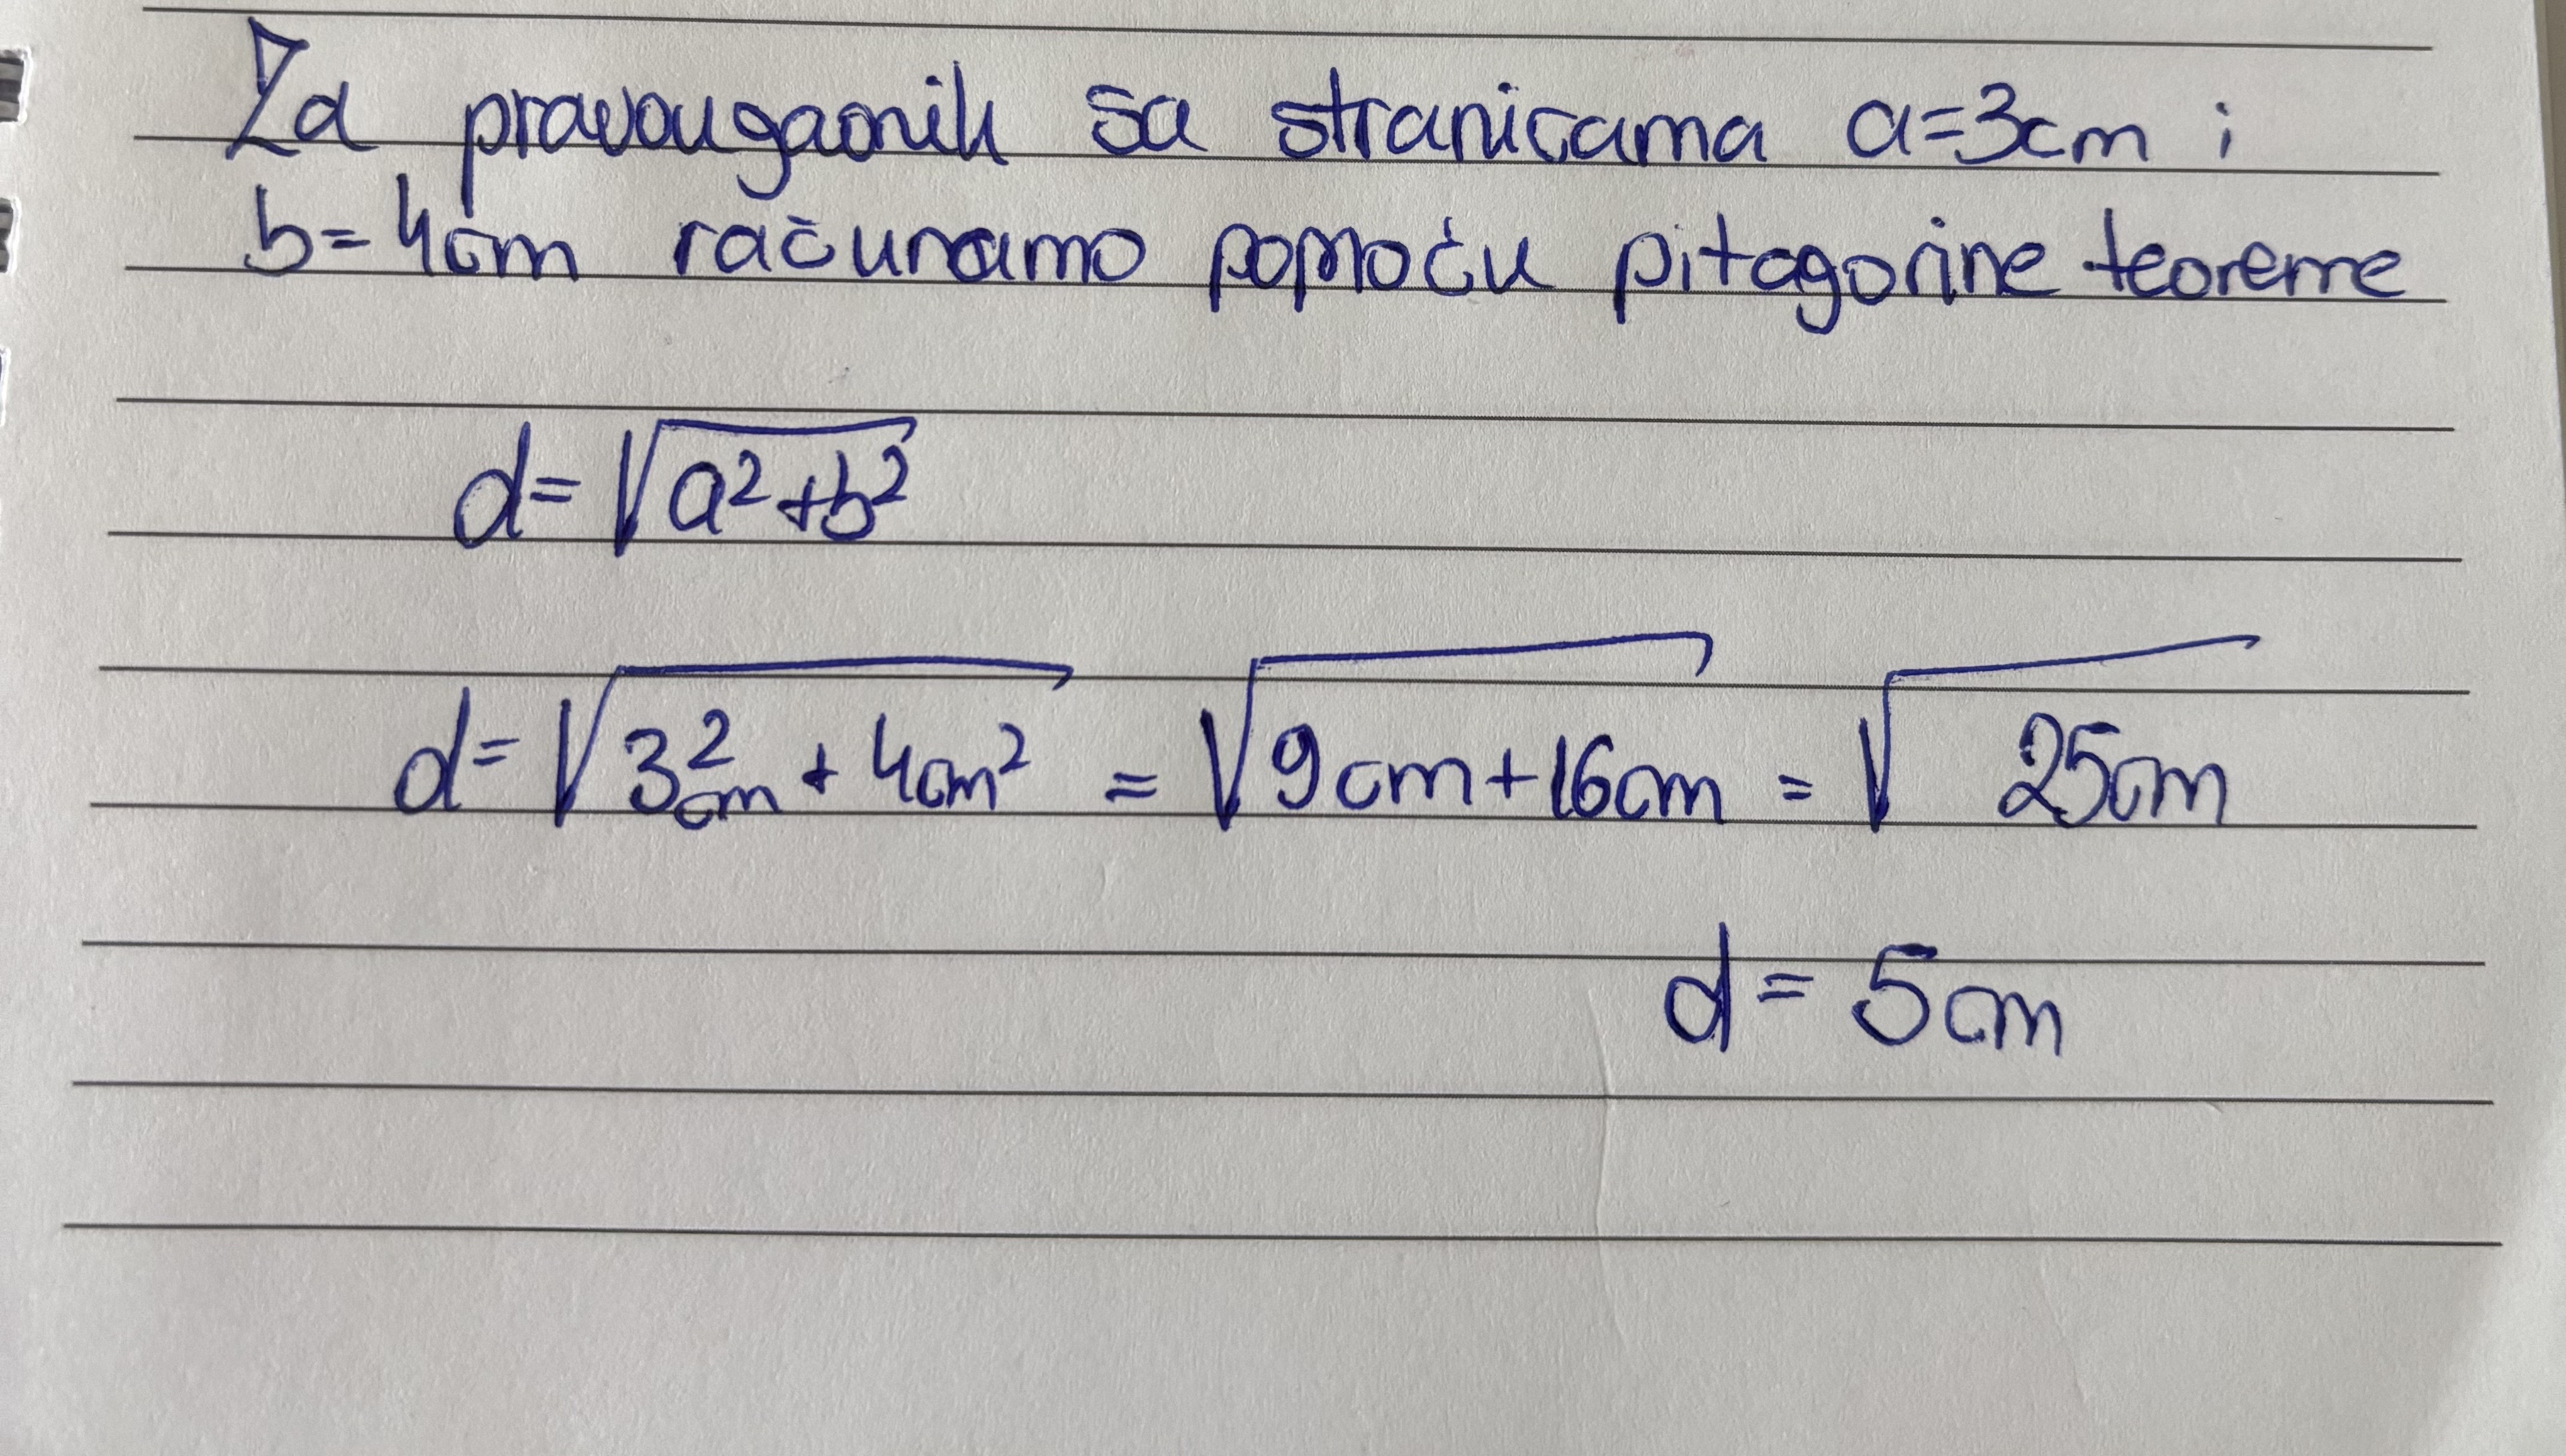 Za pravougaonik sa stranicama a=3cm i
b=4cm računamo pomoću pitagorine teoreme
d=√a²+b²
d=√3²cm + 4cm² = √9cm+16cm = √25cm
d= 5cm